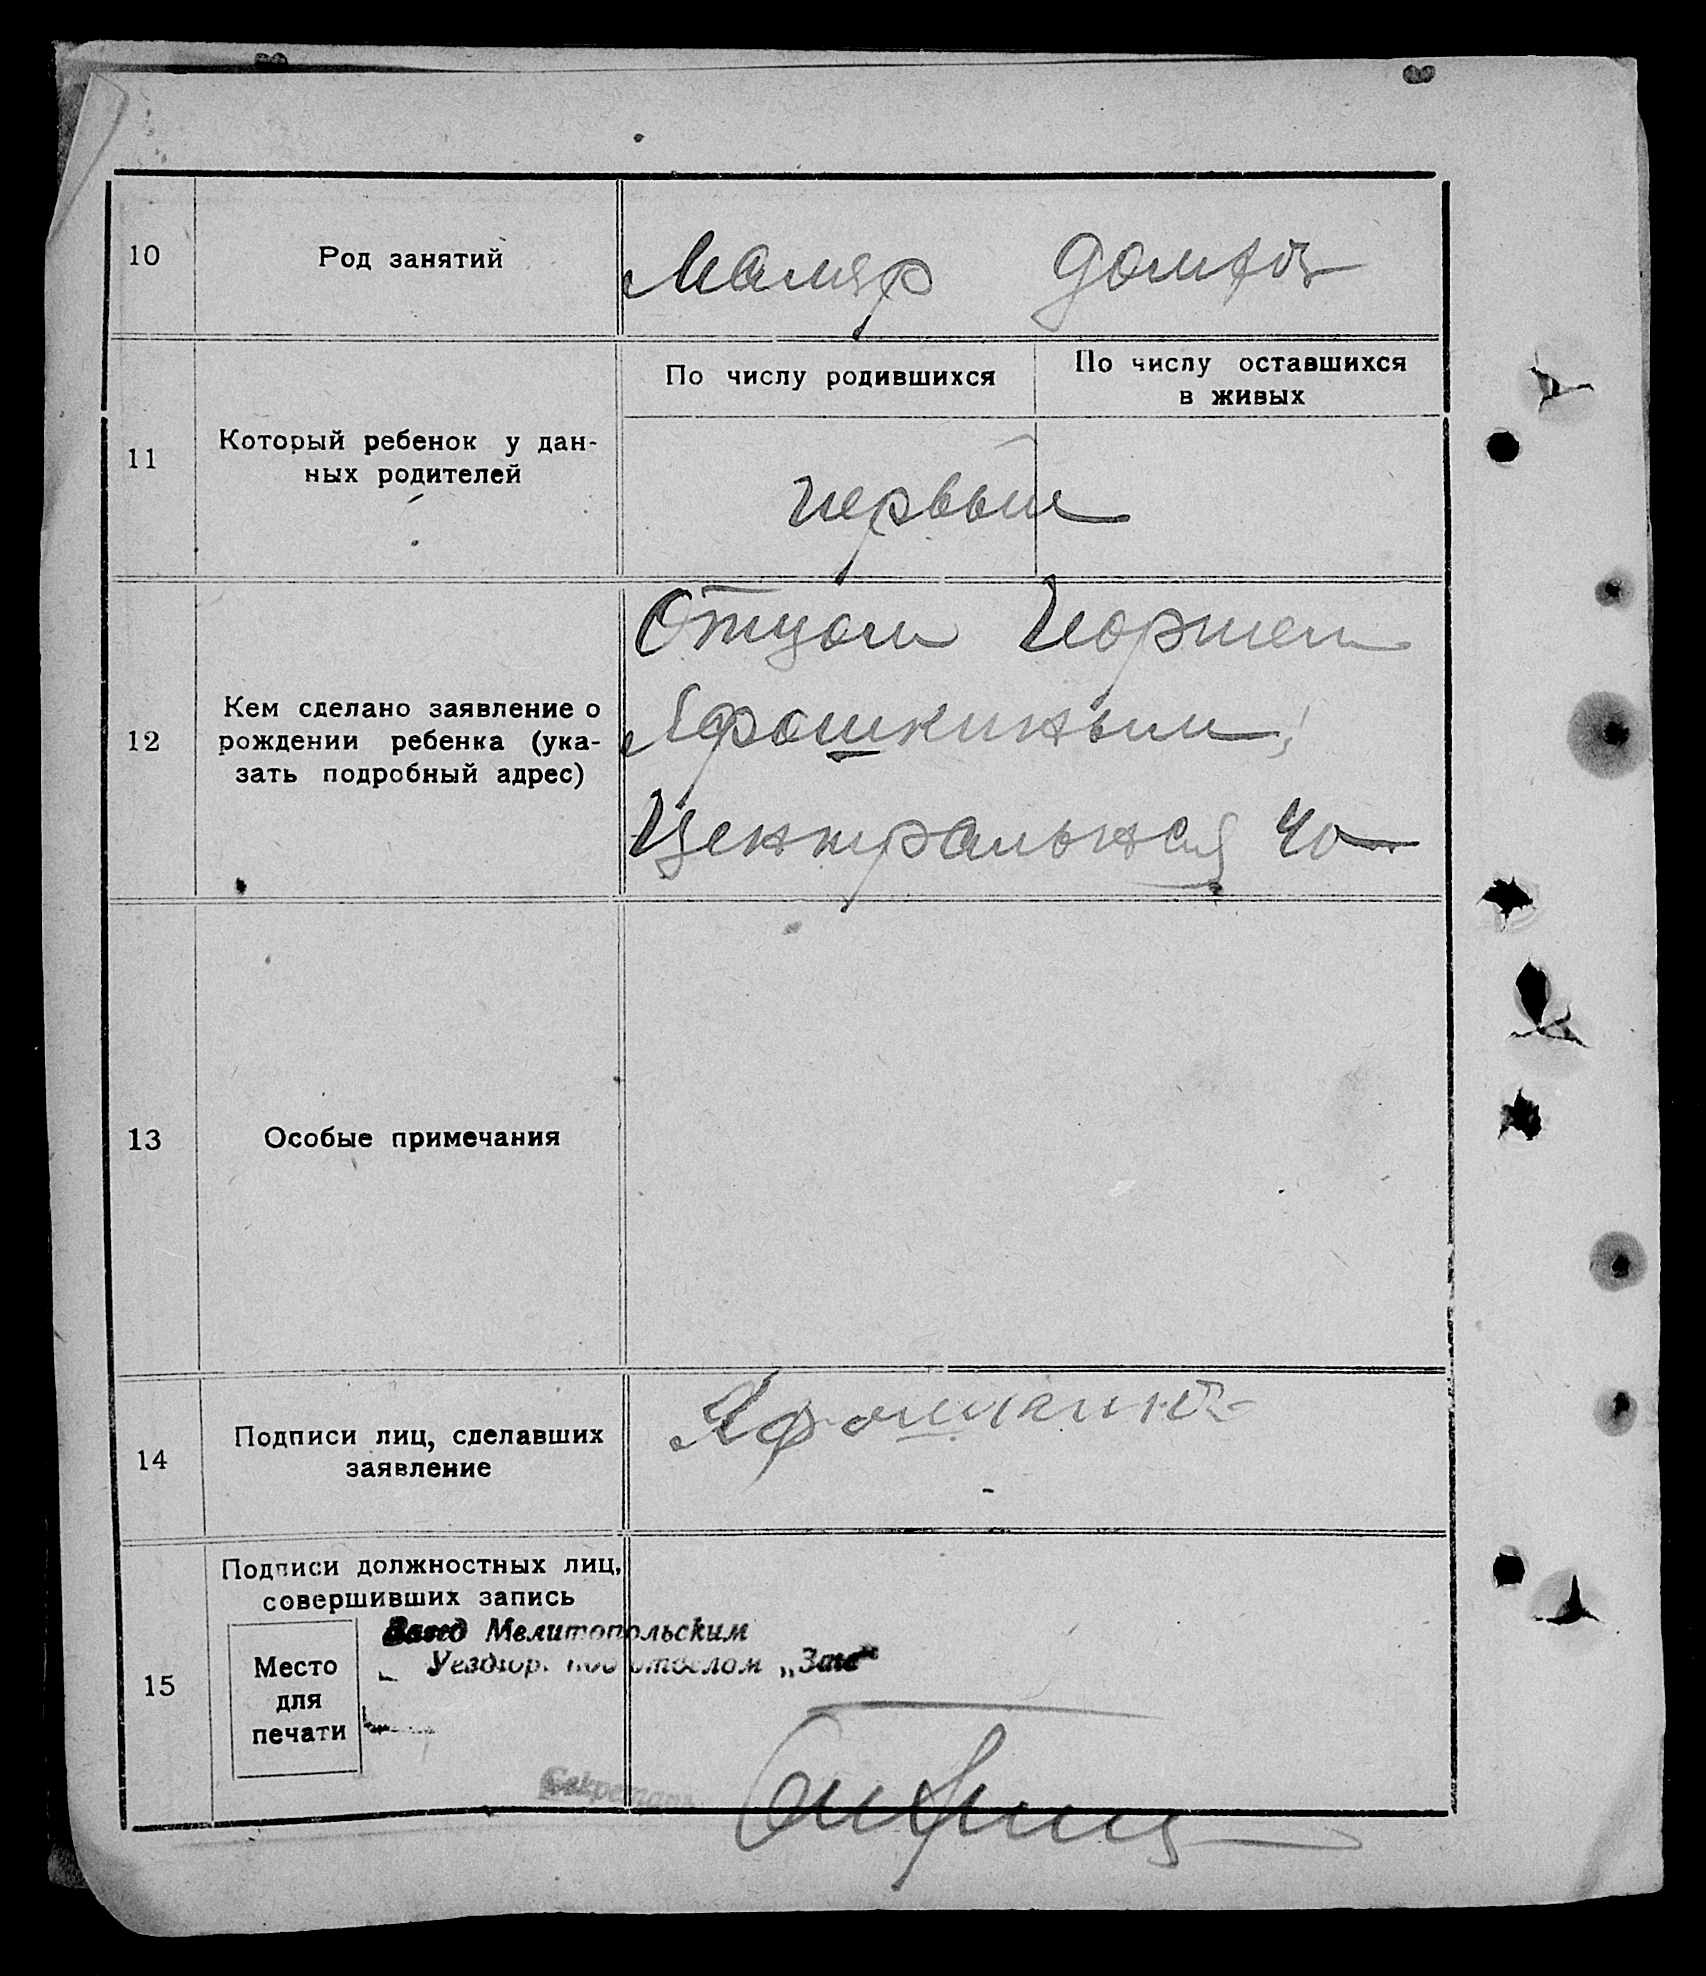 10 Род занятий Маляр домхоз
11 Который ребенок у дан-
ных родителей
По числу родившихся
По числу оставшихся
в живых
первый
12 Кем сделано заявление о
рождении ребенка (ука-
зать подробный адрес)
Отцом
Ярошкиным,
Центральная 40
13 Особые примечания
14 Подписи лиц, сделавших
заявление
Ярошкин
15 Подписи должностных лиц,
совершивших запись
Место
для
печати
Завед Мелитопольским
Уездгор. подотделом „Загс“
Секретарь